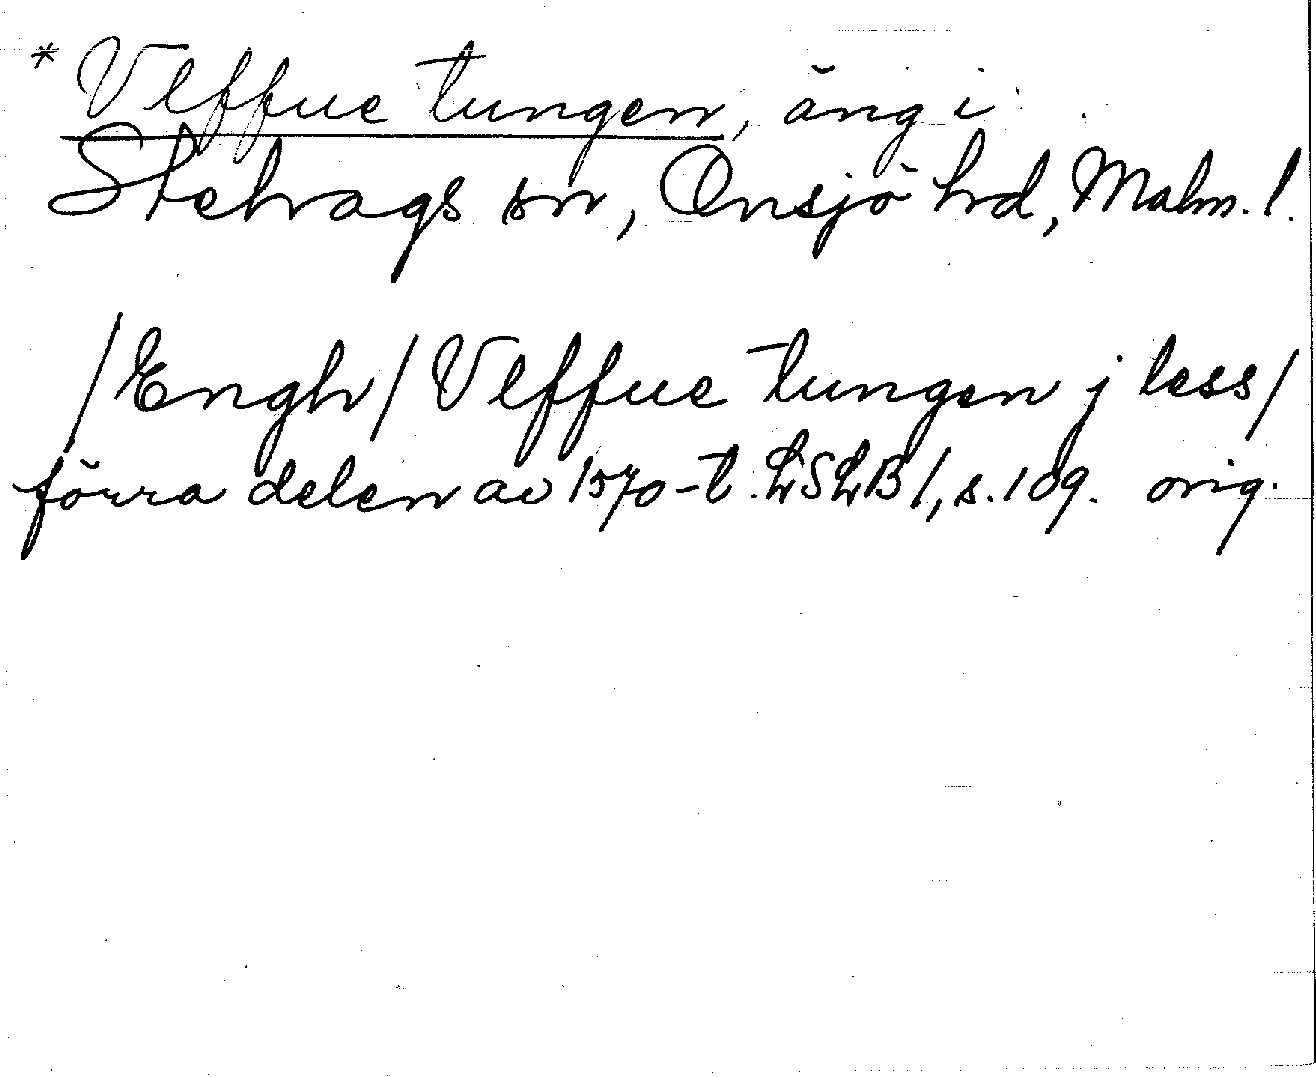 * Vlffue tungen, äng i
Stehags sn, Onsjö hd, Malm. l.
/Engh/ Vlffue tungen j less/
förra delen av 1570-t. LSLB 1, s. 109. orig.